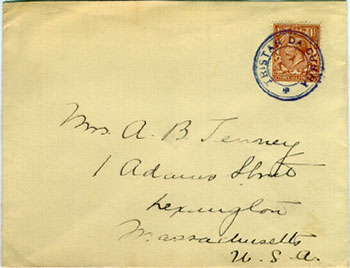 TRISTAN DA CUNHA
Mrs. A. B Tenney
1 Adams Street
Lexington
Massachusetts
U. S. A.